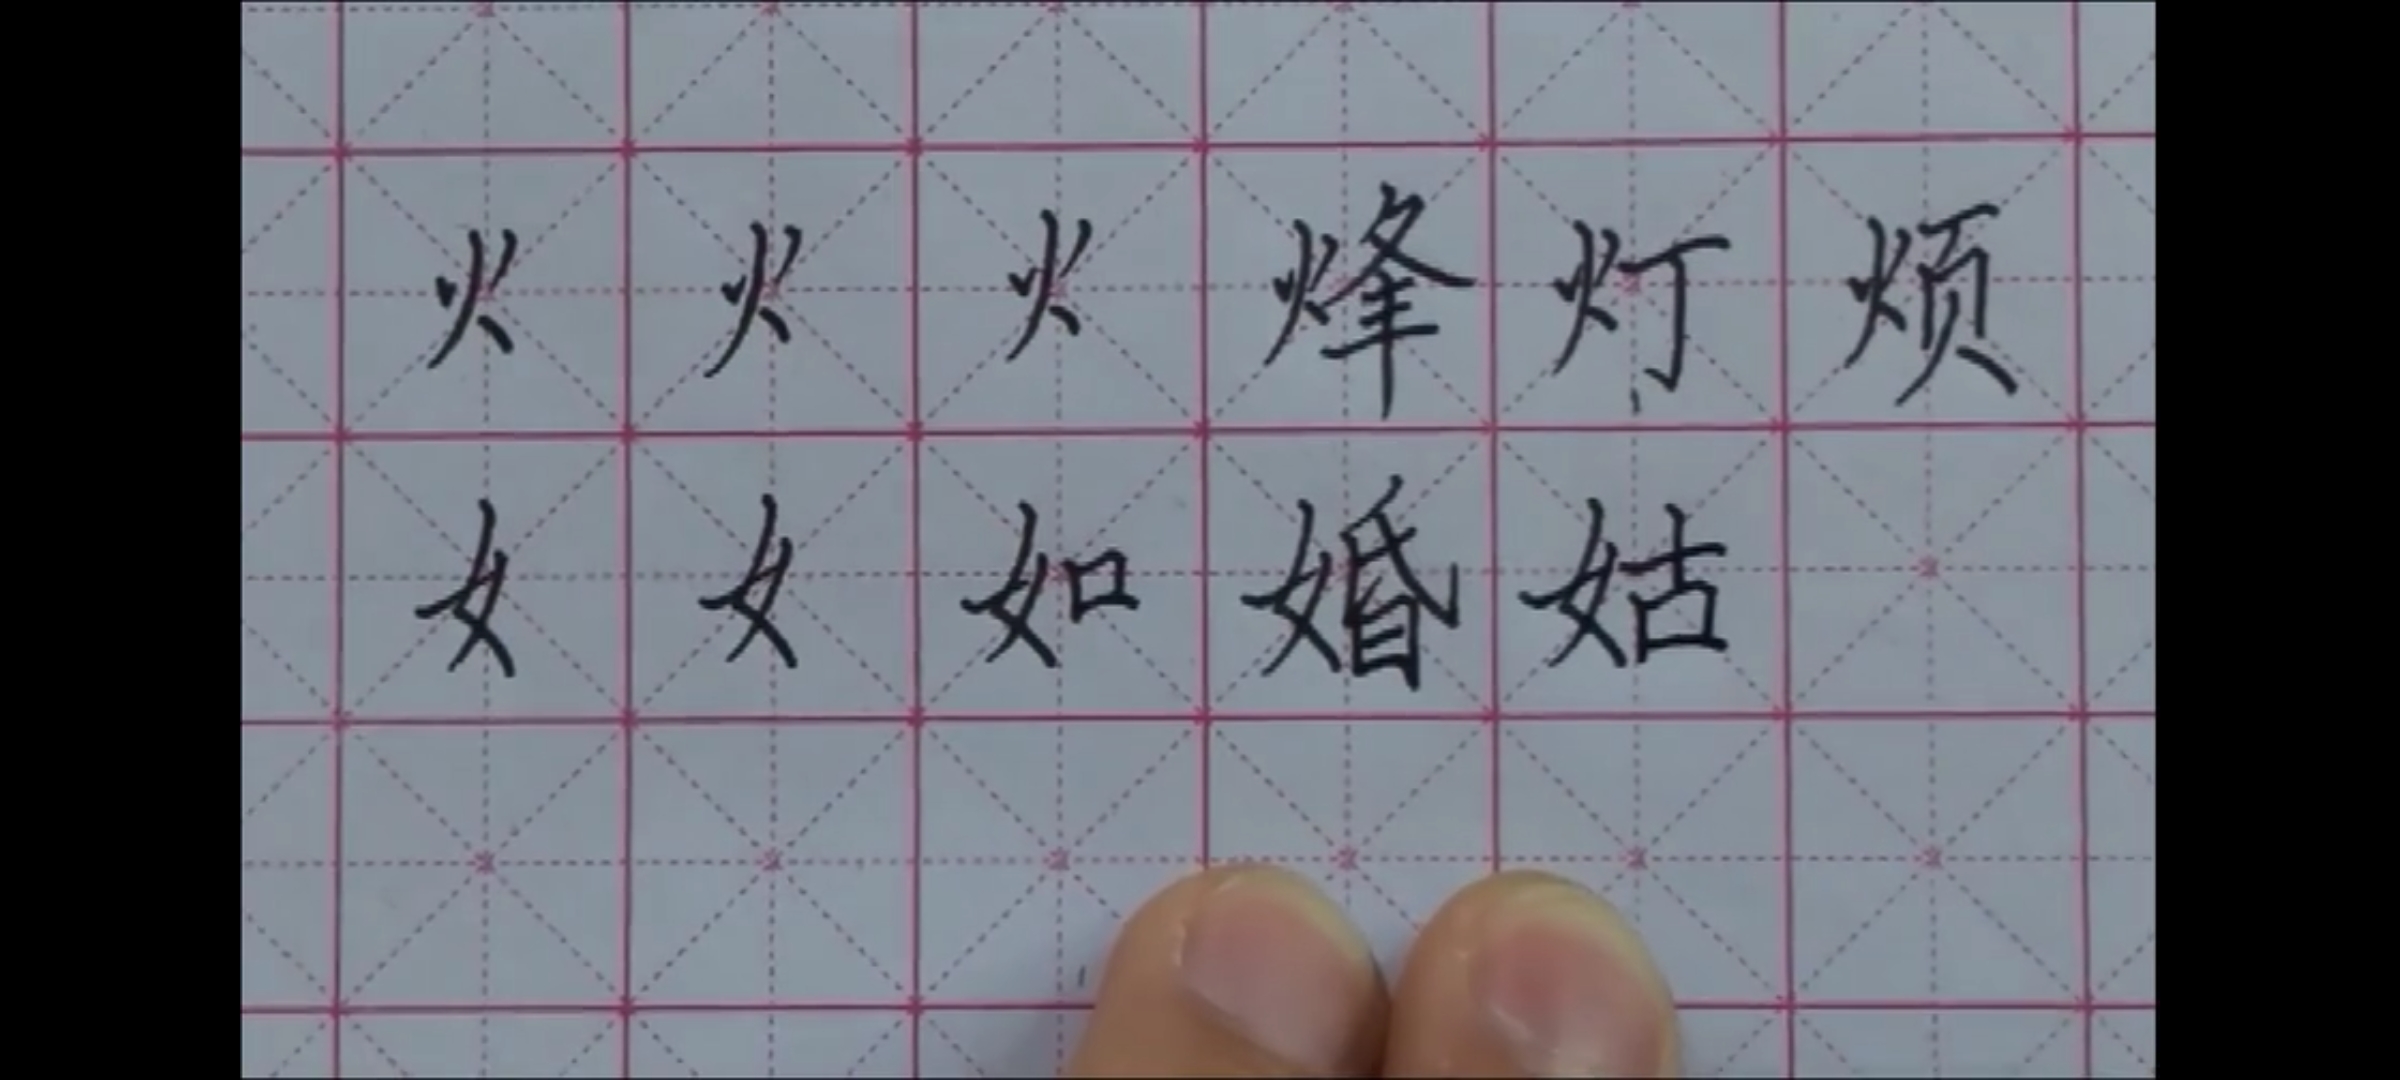 火火火烽灯烦
女女如婚姑